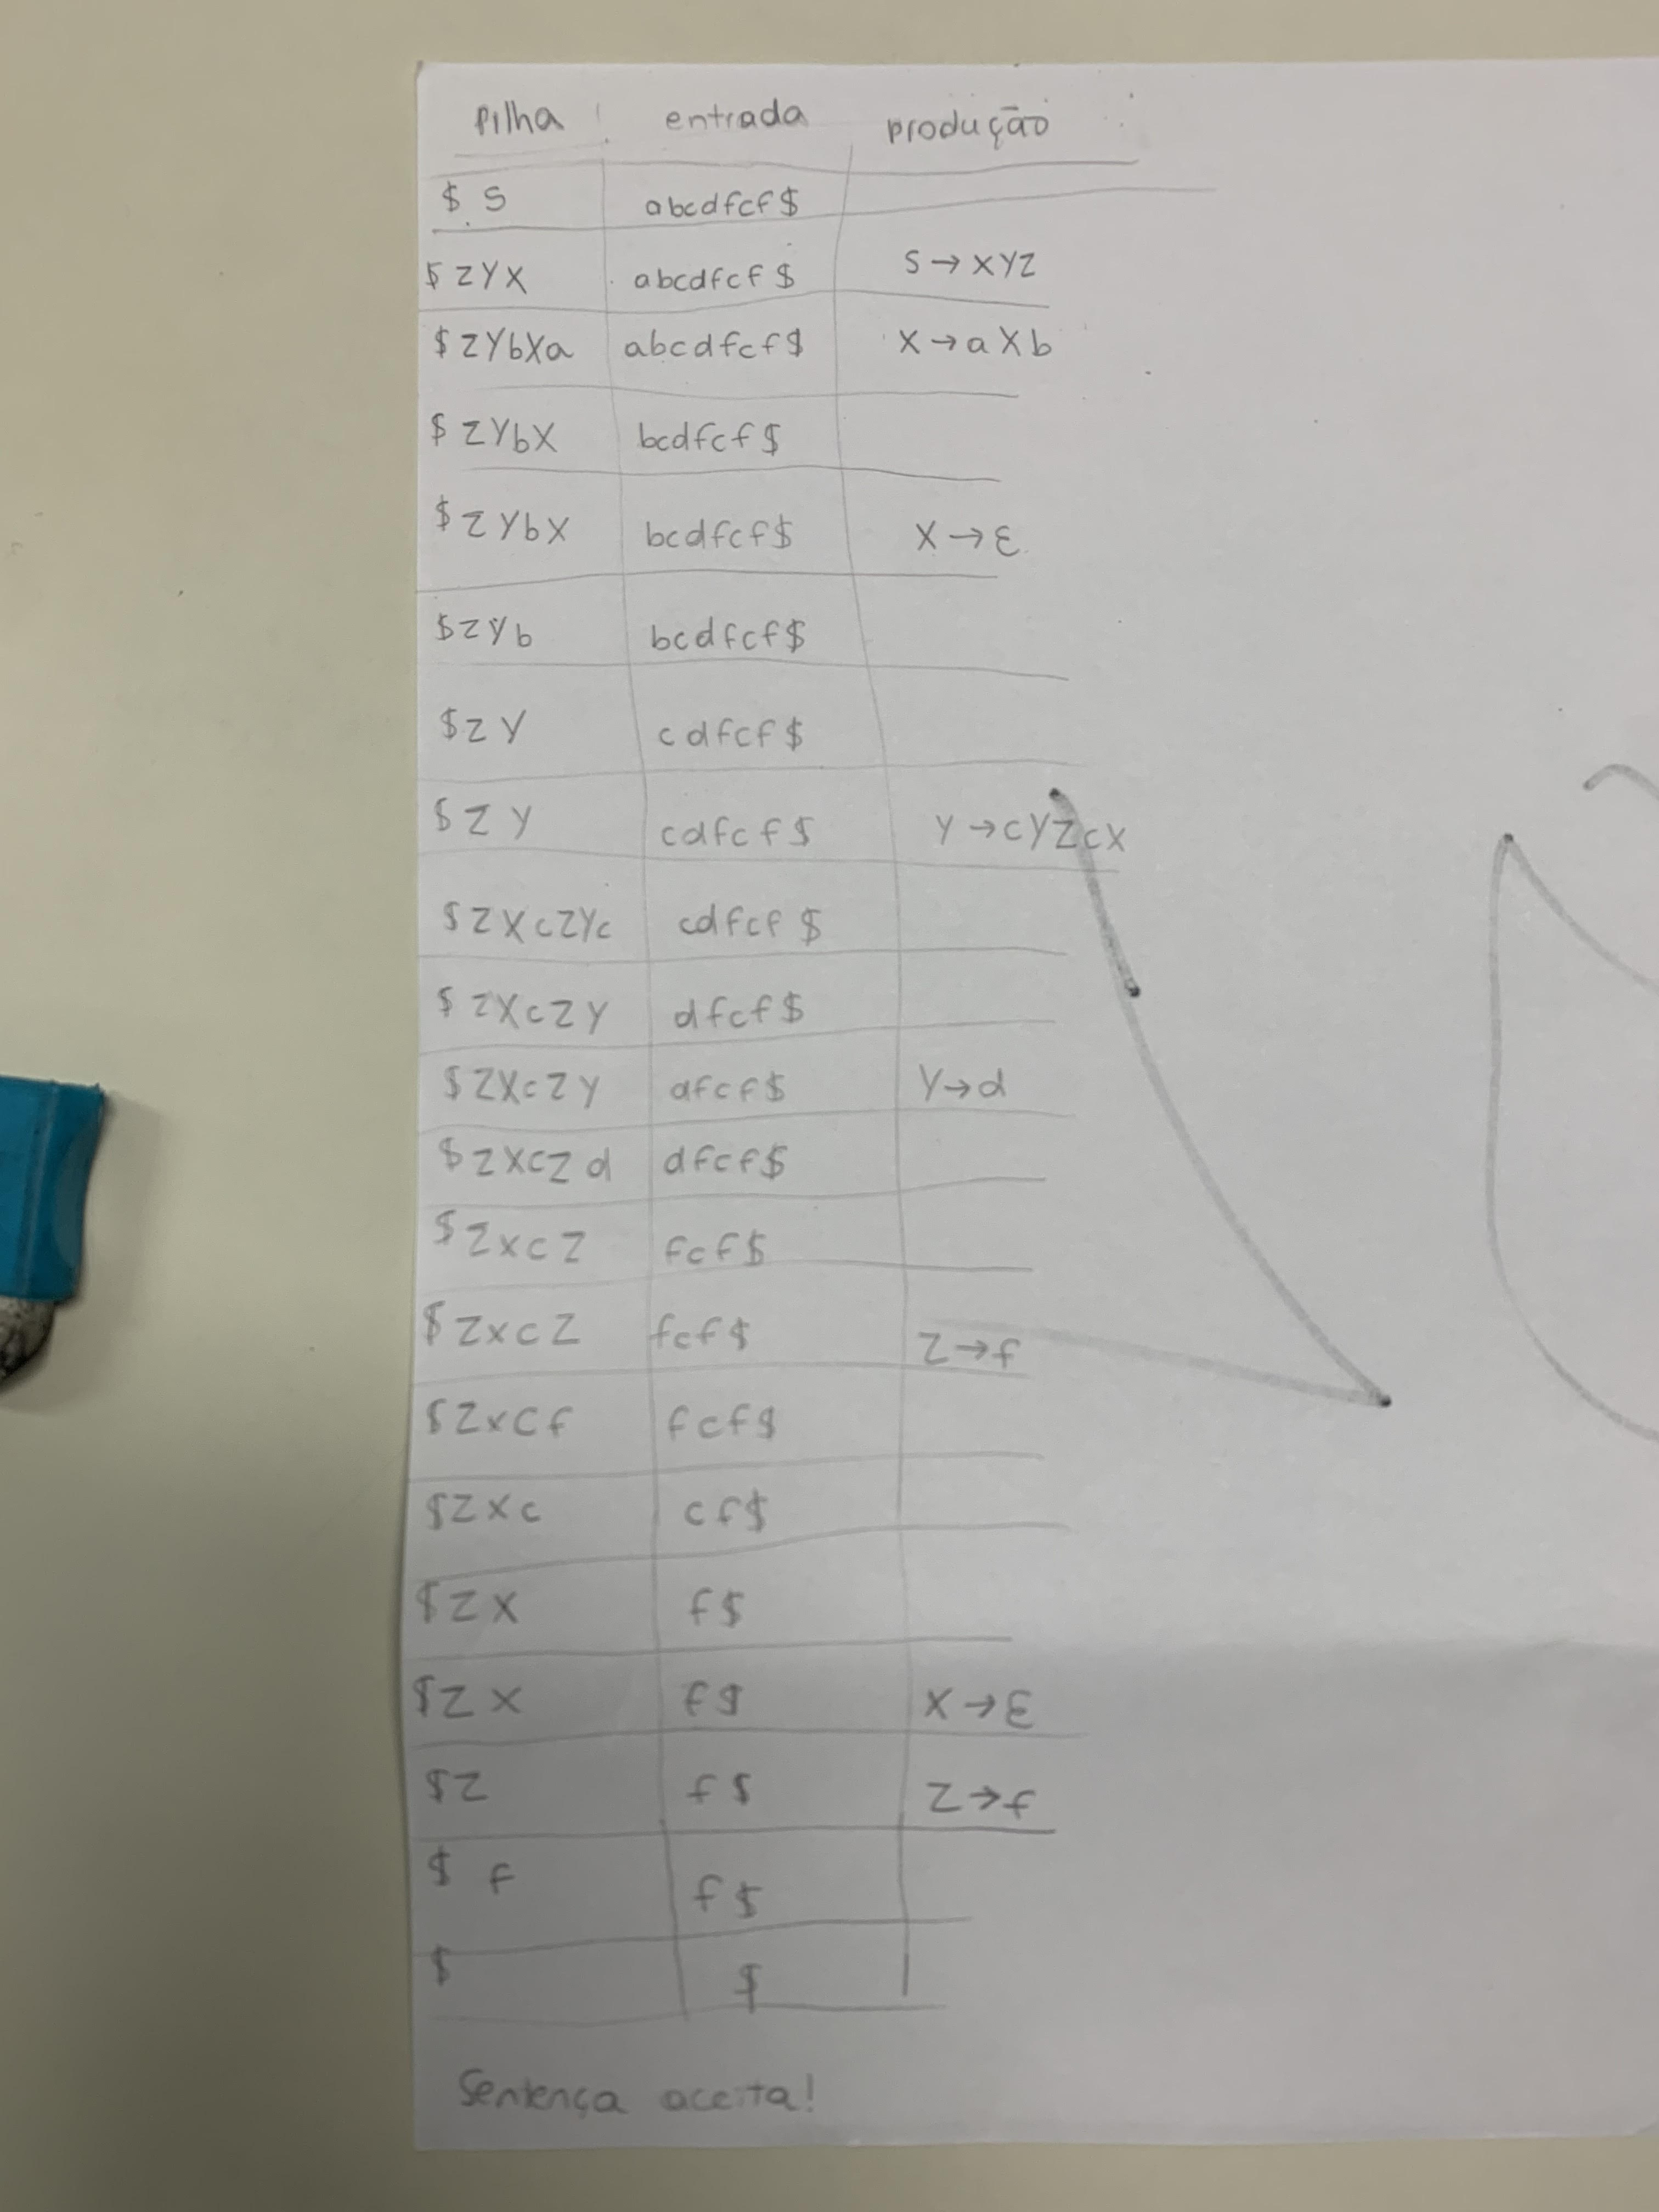 Pilha entrada produção
$ S abcdfcf$
$ZYX abcdfcf$ S→XYZ
$ZYbXa abcdfcf$ X→aXb
$ZYbX bcdfcf$
$ZYbX bcdfcf$ X→ε
$ZYb bcdfcf$
$ZY cdfcf$
$ZY cdfcf$ Y→cYZcX
$ZXcZYc cdfcf$
$ZXcZY dfcf$
$ZXcZY dfcf$ Y→d
$ZXcZd dfcf$
$ZXcZ fcf$
$ZXcZ fcf$ Z→f
$ZXcf fcf$
$ZXc cf$
$ZX f$
$ZX f$ X→ε
$Z f$ Z→f
$ f f$
$ $
Sentença aceita!